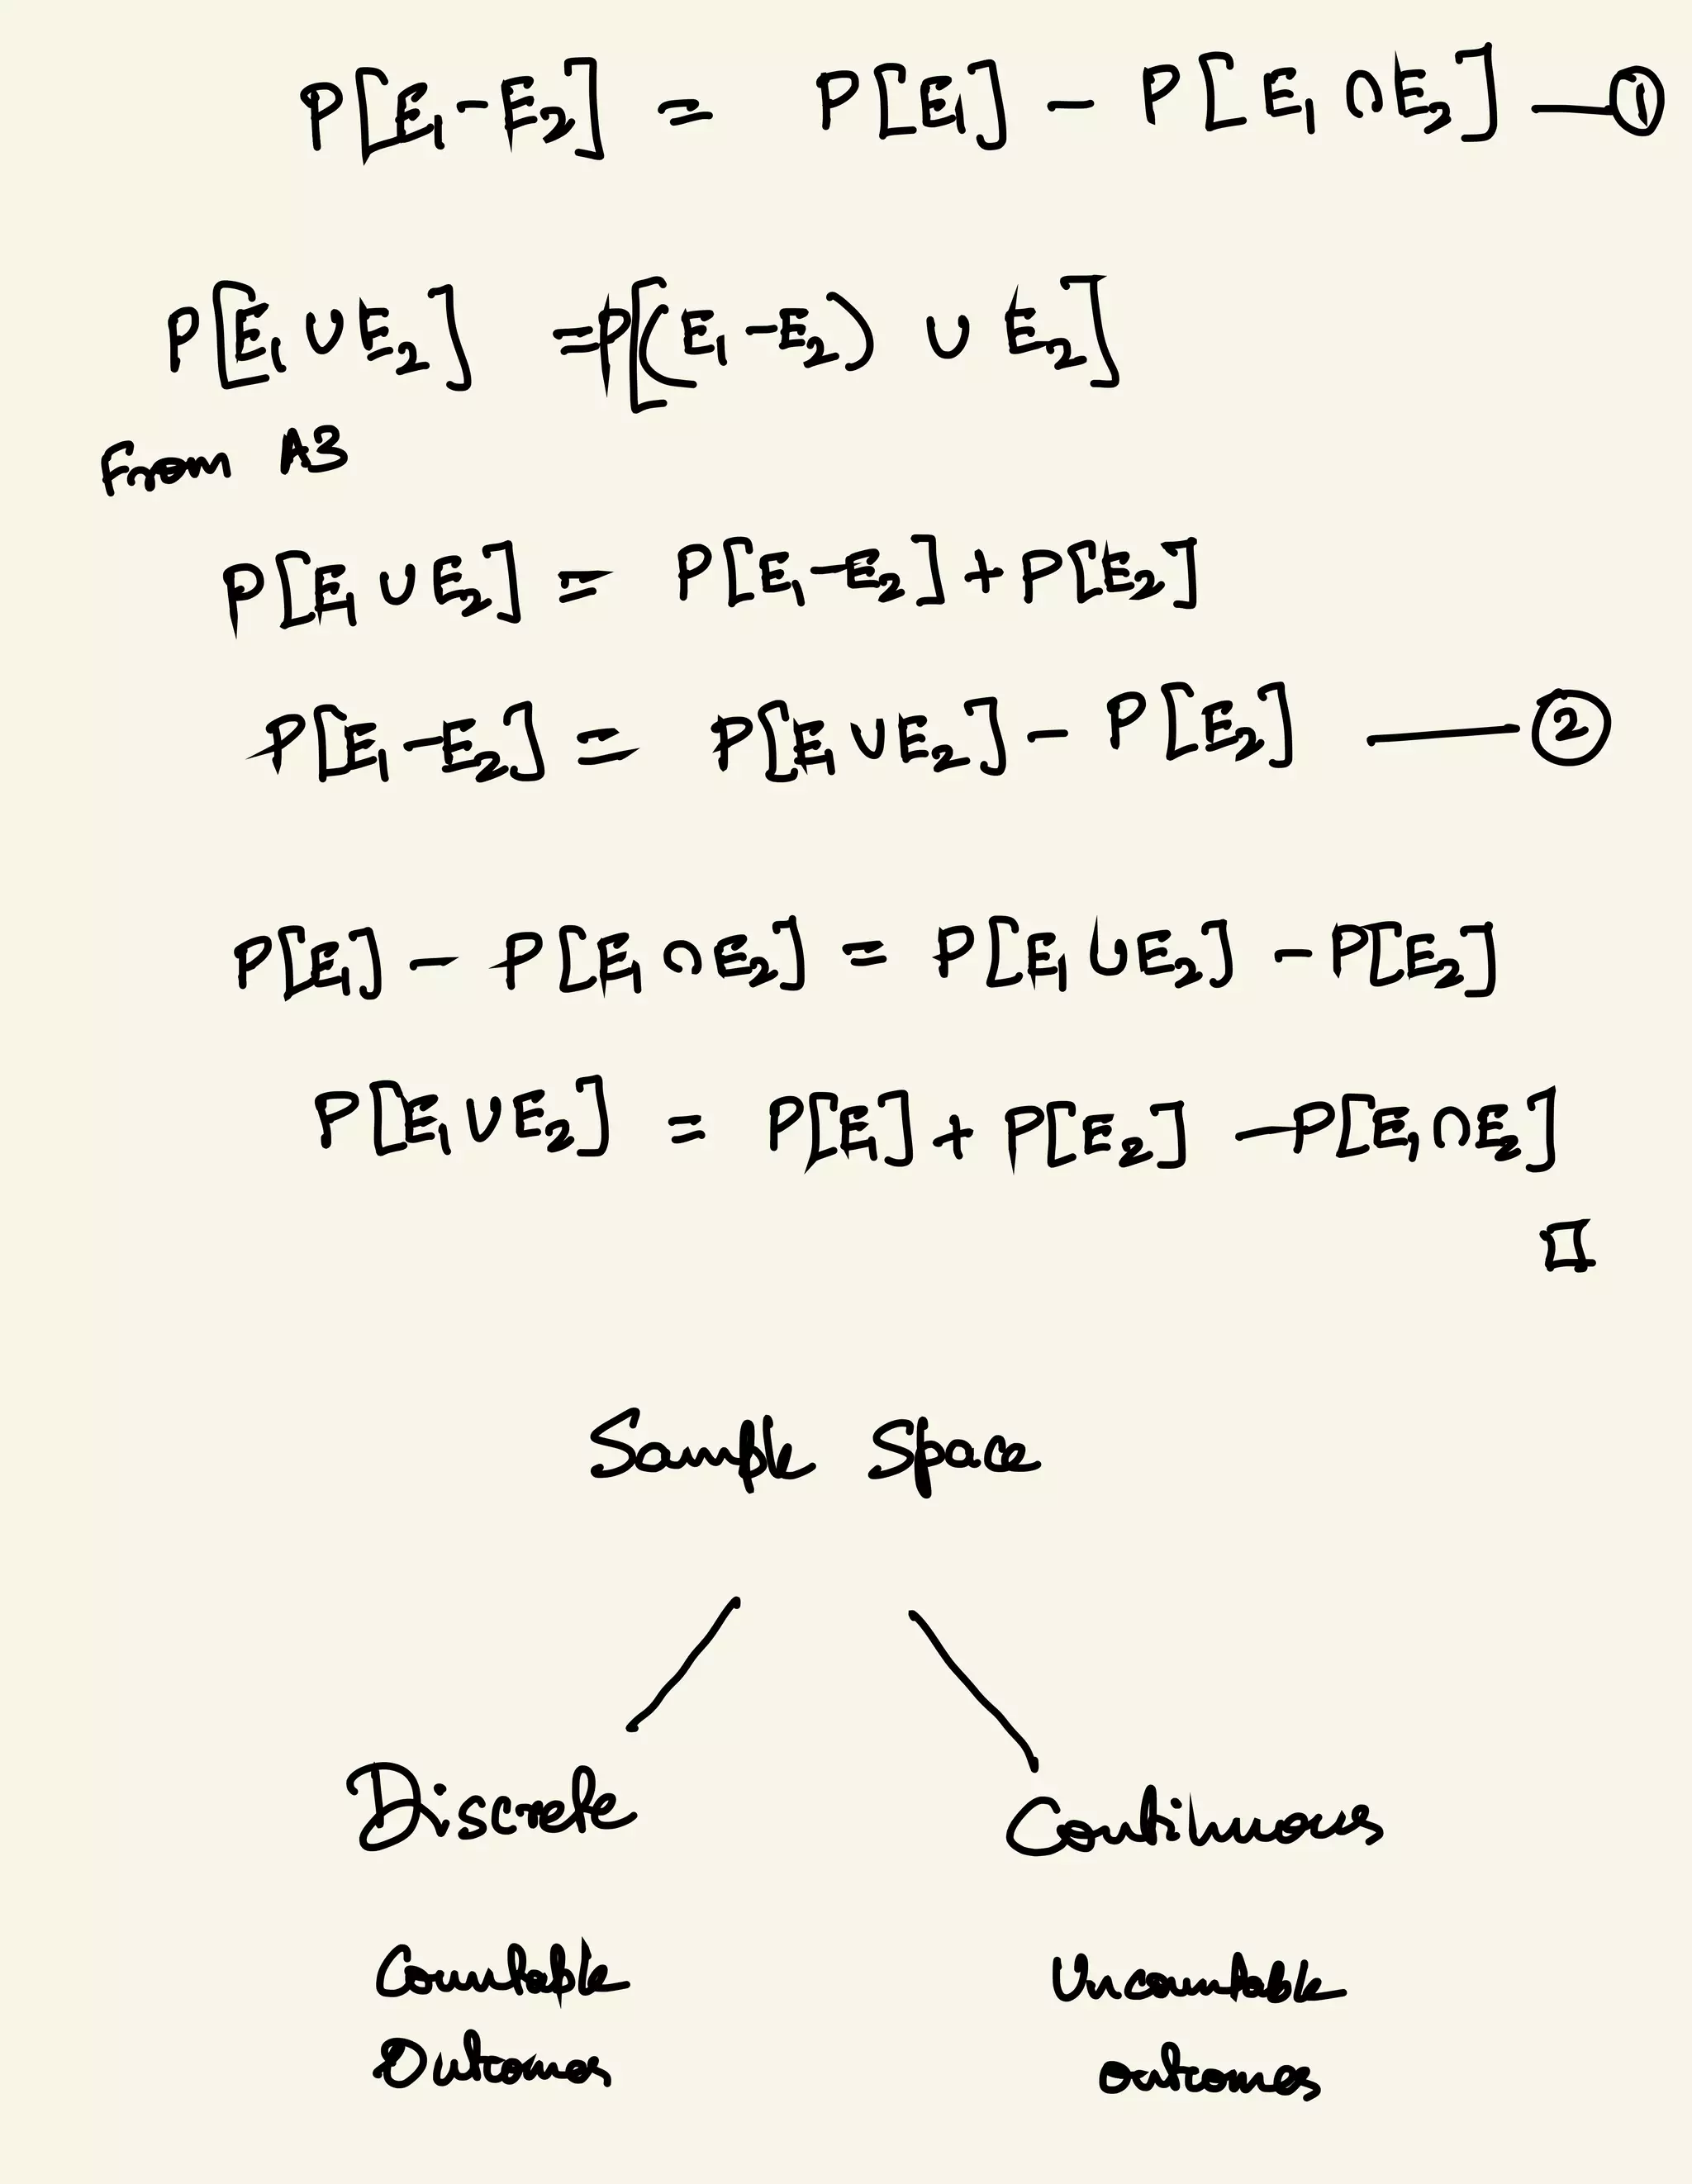 P[E₁-E₂] = P[E₁] - P[E₁ ∩ E₂] — ①
P[E₁ ∪ E₂] = P[(E₁-E₂) ∪ E₂]
From A3
P[E₁ ∪ E₂] = P[E₁-E₂] + P[E₂]
P[E₁-E₂] = P[E₁ ∪ E₂] - P[E₂] — ②
P[E₁] - P[E₁ ∩ E₂] = P[E₁ ∪ E₂] - P[E₂]
P[E₁ ∪ E₂] = P[E₁] + P[E₂] - P[E₁ ∩ E₂]
□
Sample Space
Discrete Continuous
Countable Uncountable
Outcomes outcomes